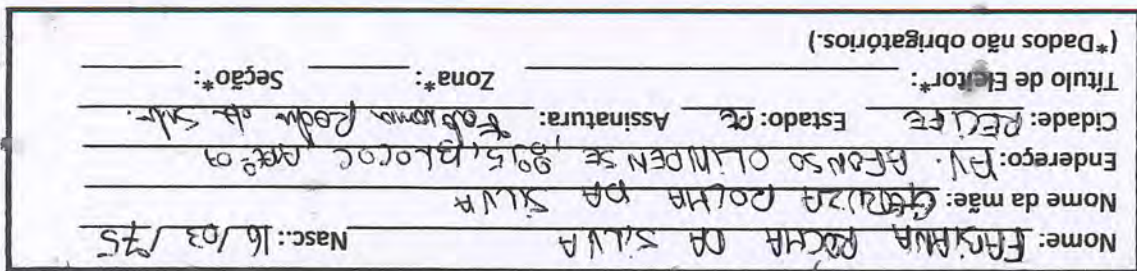 Nome: FABIANA ROCHA DA SILVA Nasc.: 16/03/75
Nome da mãe: ROCHA DA SILVA
Endereço: AV. AFONSO OLINDENSE, BLOCO C APTº
Cidade: RECIFE Estado: PE Assinatura: Fabiana Rocha da Silva.
Título de Eleitor*: Zona*: Seção*:
(*Dados não obrigatórios.)